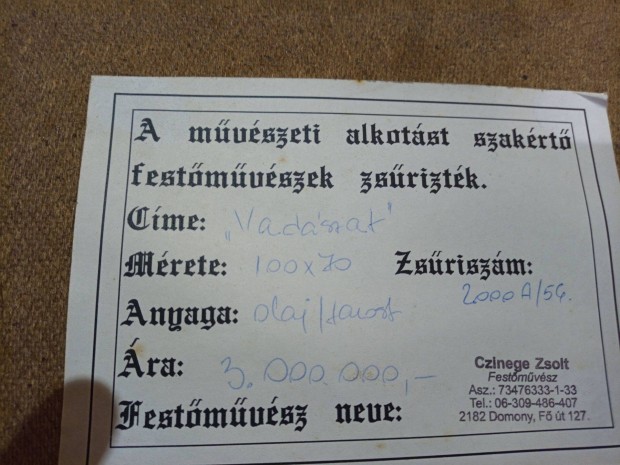 A művészeti alkotást szakértő
festőművészek zsűrizték.
Címe: „Vadászat"
Mérete: 100x70 Zsűriszám:
2000A/56.
Anyaga: olaj/farost
Ára: 3.000.000,-
Festőművész neve:
Czinege Zsolt
Festőművész
Asz.: 73476333-1-33
Tel.: 06-309-486-407
2182 Domony, Fő út 127.